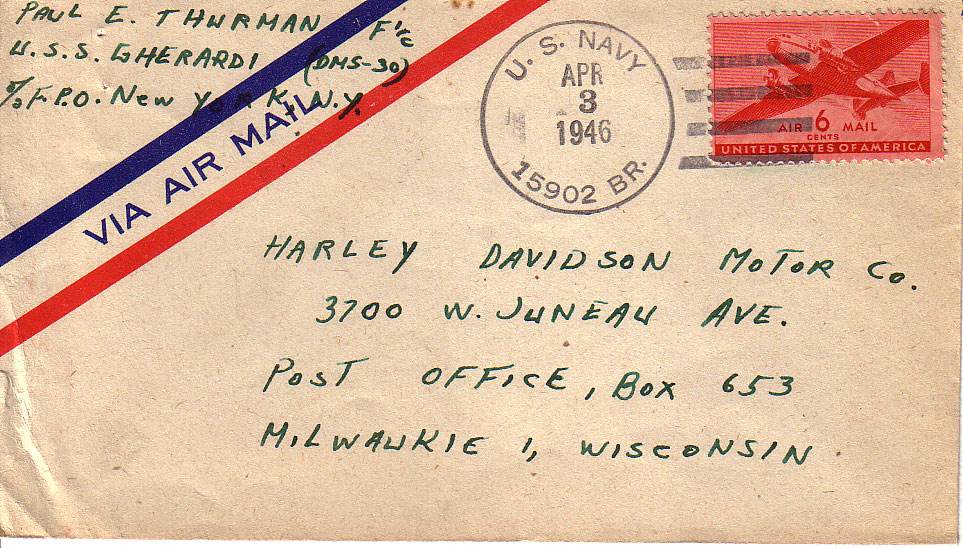 PAUL E. THURMAN F 1/c
U.S.S. GHERARDI (DMS-30)
c/o F.P.O. New YORK, N.Y.
VIA AIR MAIL
U. S. NAVY
APR
3
1946
15902 BR.
AIR 6 MAIL
CENTS
UNITED STATES OF AMERICA
HARLEY DAVIDSON MOTOR Co.
3700 W. JUNEAU AVE.
POST OFFICE, BOX 653
MILWAUKIE 1, WISCONSIN